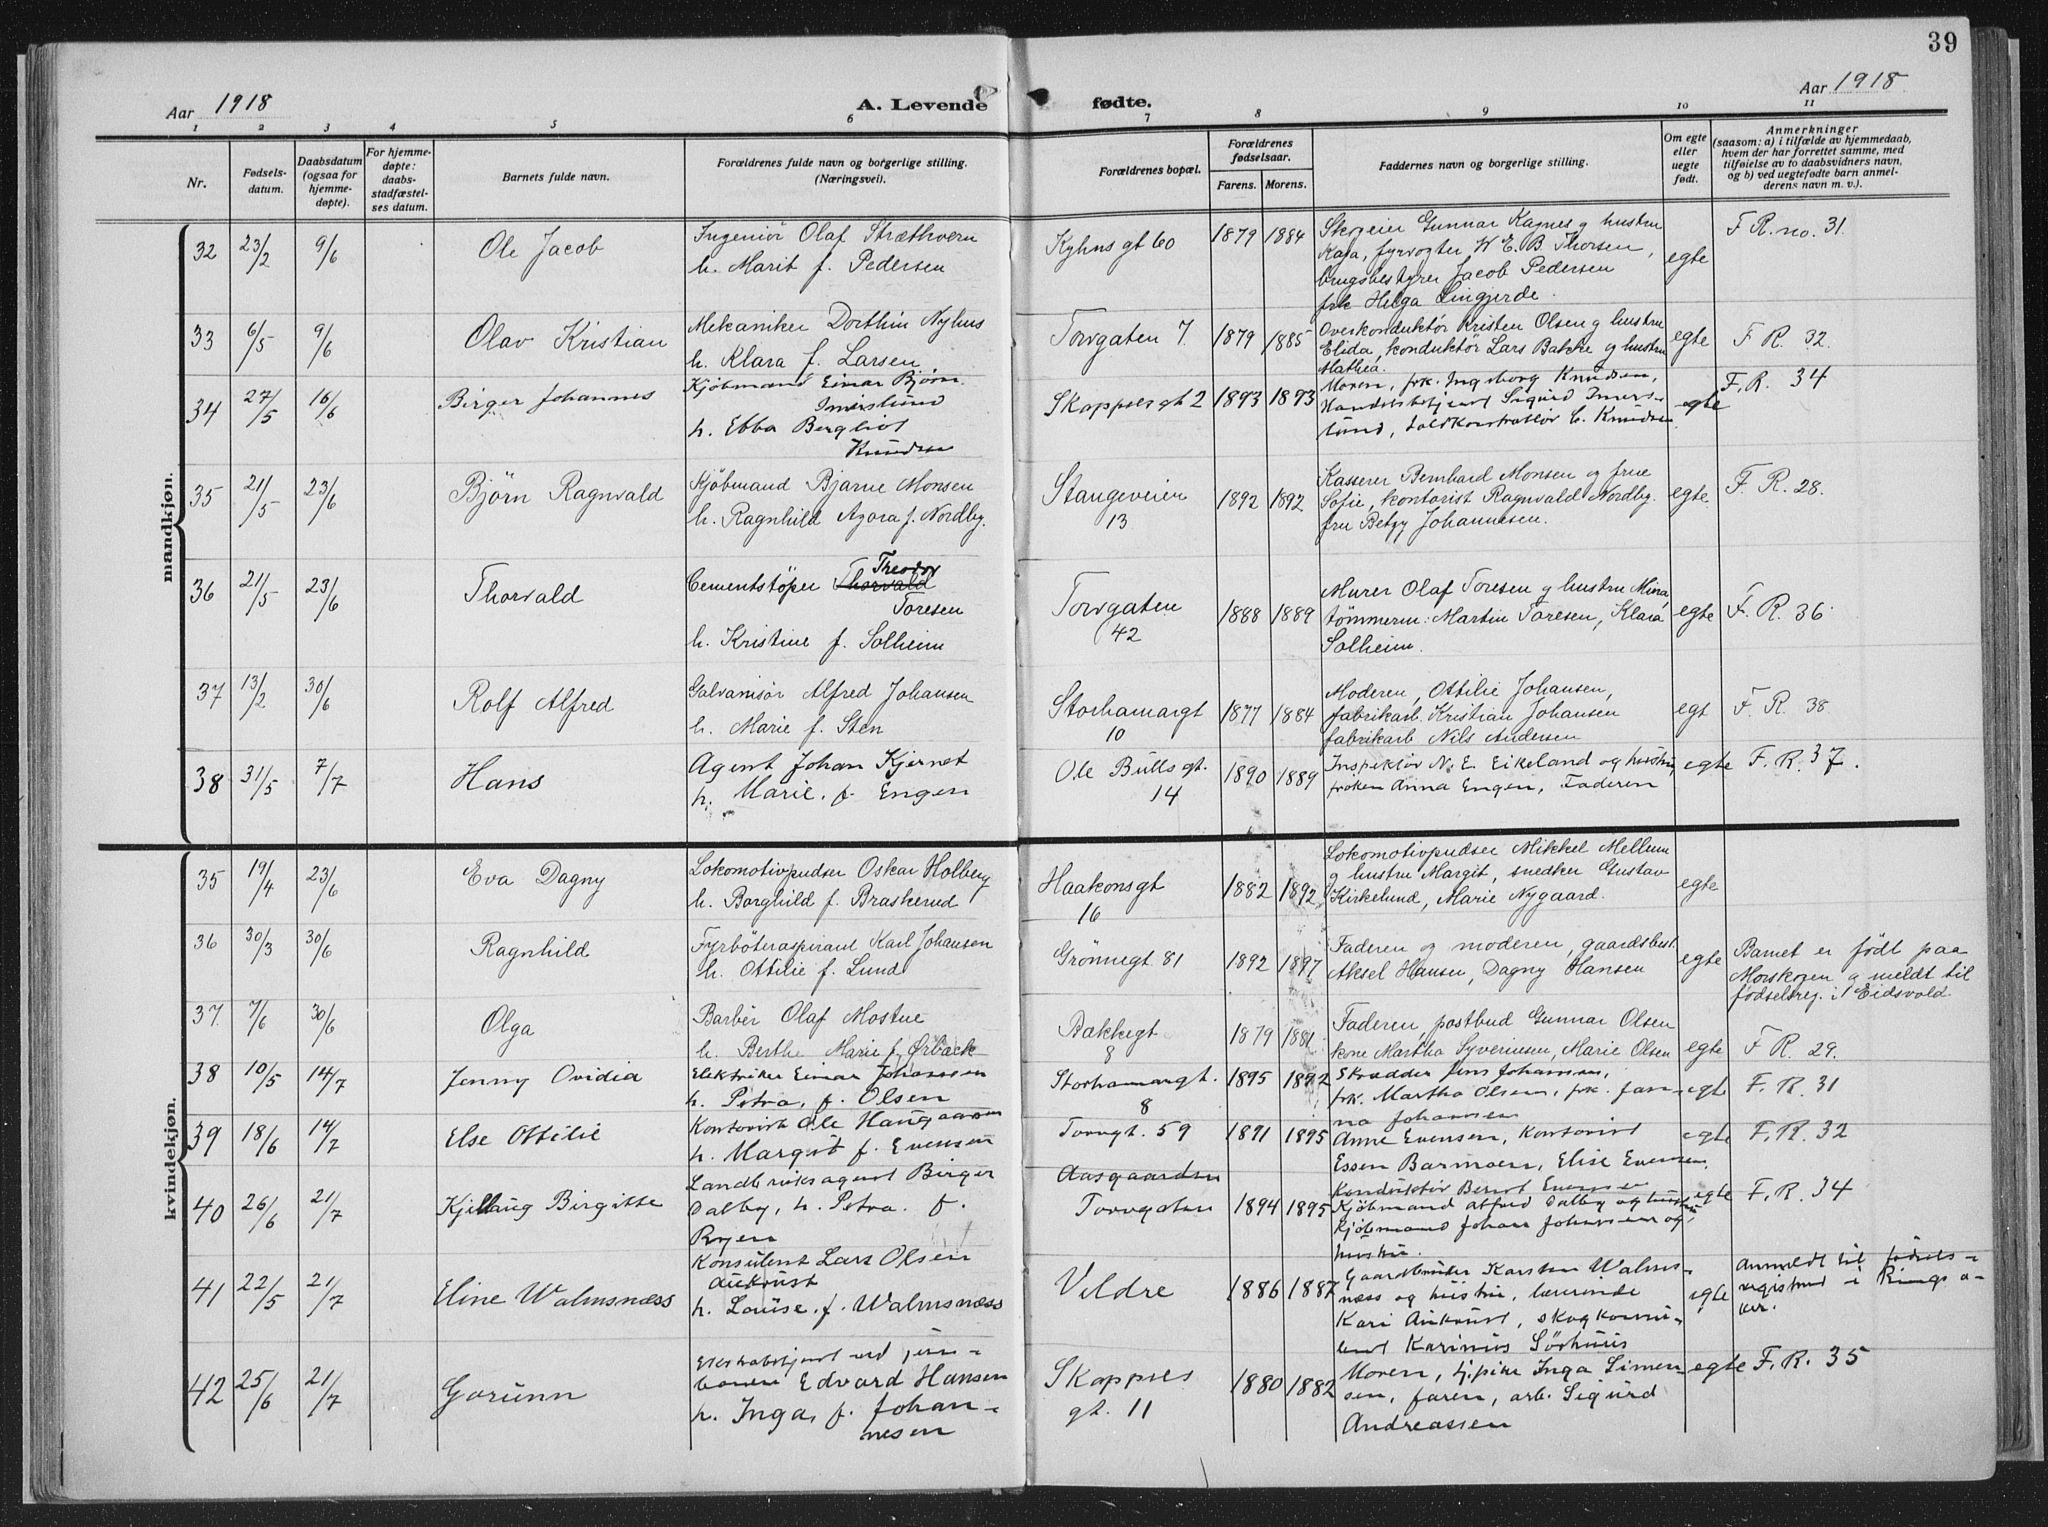 39
Aar 1918
A. Levende fødte.
Aar 1918
1 2 3 4 5 6 7 8 9 10 11
Nr.
Fødsels-
datum.
Daabsdatum
(ogsaa for
hjemme-
døpte).
For hjemme-
døpte:
daabs-
stadfæstel-
ses datum.
Barnets fulde navn.
Forældrenes fulde navn og borgerlige stilling.
(Næringsvei).
Forældrenes bopæl.
Forældrenes
fødselsaar.
Farens. Morens.
Faddernes navn og borgerlige stilling.
Om egte
eller
uegte
født.
Anmerkninger
(saasom: a) i tilfælde av hjemmedaab,
hvem der har forrettet samme, med
tilføielse av to daabsvidners navn,
og b) ved uegtefødte barn anmel-
derens navn m. v.).
mandkjøn.
32 23/2 9/6 Ole Jacob
Ingeniør Olaf Stræthvern
h. Marit f. Pedersen
Kyhns gt 60 1879 1884
Skogeier Gunnar Kagnes g hustru
Kaja, fyrvogter W. E. B. Thorsen,
brugsbestyrer Jacob Pedersen
frk Helga Lingjerde.
egte F R. no. 31.
33 6/5 9/6 Olav Kristian
Mekaniker Dorthin Nyhus
h. Klara f. Larsen
Torvgaten 7. 1879 1885
Overkonduktør Kristen Olsen g hustru
Elida, konduktør Lars Bakke g hustru
Mathea.
egte F R. 32.
34 27/5 16/6 Birger Johannes
Kjøbmand Einar Bjørn
Imerslund
h. Ebba Bergliot
Knudsen
Skappels gt 2 1893 1893
Moren, frk. Ingeborg Knudsen,
Handelsbetjent Sigurd Imers-
lund, Toldkontrollør C. Knudsen
egte F. R. 34
35 21/5 23/6 Bjørn Ragnvald
Kjøbmand Bjarne Monsen
h. Ragnhild Agora f. Nordby.
Stangeveien
13
1892 1892
Kasserer Bernhard Monsen og frue
Sofie, kontorist Ragnvald Nordby.
fru Betzy Johannesen.
egte F. R. 28.
36 21/5 23/6 Thorvald
Theodor
Cementstöper Thorvald
Toresen
h. Kristine f. Solheim
Torvgaten
42
1888 1889
Murer Olaf Toresen g hustru Mina,
tømmerm. Martin Toresen, Klara
Solheim.
egte F. R. 36
37 13/2 30/6 Rolf Alfred
Galvanisør Alfred Johansen
h. Marie f. Sten
Storhamargt
10
1877 1884
Moderen, Ottilie Johansen,
fabrikarb. Kristian Johansen
fabrikarb Nils Andersen
egt F. R. 38.
38 31/5 7/7 Hans
Agent Johan Kjernet
h. Marie. f. Engen
Ole Bulls gt.
14
1890 1889
Inspektør N. E. Eikeland og hustru,
frøken Anna Engen, Faderen
egte F. R. 37.
kvindekjøn.
35 19/4 23/6 Eva Dagny
Lokomotivpudser Oskar Holberg
h. Borghild f. Braskerud
Haakonsgt
16
1882 1892
Lokomotivpudser Mikkel Mellum
g hustru Margit, snedker Gustav
Kirkelund, Marie Nygaard.
egte
36 30/3 30/6 Ragnhild
Fyrböteraspirant Karl Johansen
h. Ottilie f. Lund
Grönnegt. 81 1892 1897
Faderen og moderen, gaardsbest.
Aksel Hansen, Dagny Hansen
egte
Barnet er födt paa
Morskogen g meldt til
födselsreg. i Eidsvold
37. 7/6 30/6 Olga
Barber Olaf Mostue
h. Berthe Marie f. Ørbæck
Bakkegt
8
1879 1881
Faderen, postbud Gunnar Olsen
kone Martha Syverinsen, Marie Olsen
egte F R. 29.
38 10/5 14/7 Jenny Ovidia
Elektriker Einar Johansen
h. Petra, f. Olsen
Storhamargt.
8
1895 1892
Skrædder Jens Johansen,
frk. Martha Olsen, frk. Jan-
na Johansen
egte F. R. 31
39 18/6 14/7 Else Ottilie
Kontorist Ole Haugaarden
h. Margit f. Evensen
Torvgt. 59 1891 1895
Anne Evensen, Kontorist
Essen Barmoen, Elise Evensen,
Konduktør Bernt Evensen
egte F. R. 32
40 26/6 21/7 Kjellaug Birgitte
Landbruksagent Birger
Dalby, h. Petra. f.
Ryen
Aasgaarden
Torvgaten
1894 1895
Kjøbmand Alfred Dalby og hustru,
Kjøbmand Johan Johansen og
hustru.
egte F. R. 34
41 22/5 21/7 Eline Walmsnæss
Konsulent Lars Olsen
Aukrust
h. Louise. f. Walmsnæss
Veldre 1886 1887
Gaardbruker Karsten Walms-
næss og hustru, lærerinde
Kari Aukrust, skogkonsu-
lent Karinius Sörhuus
egte
Anmeldt til fødsels-
registret i Ringsa-
ker.
42 25/6 21/7 Gorunn
Ekstrabetjent ved jern-
banen Edvard Hansen
h. Inga, f. Johan-
nesen
Skappels
gt. 11
1880 1882
Moren, pike Inga Simen-
sen, faren, arb. Sigurd
Andreassen
egte F. R. 35